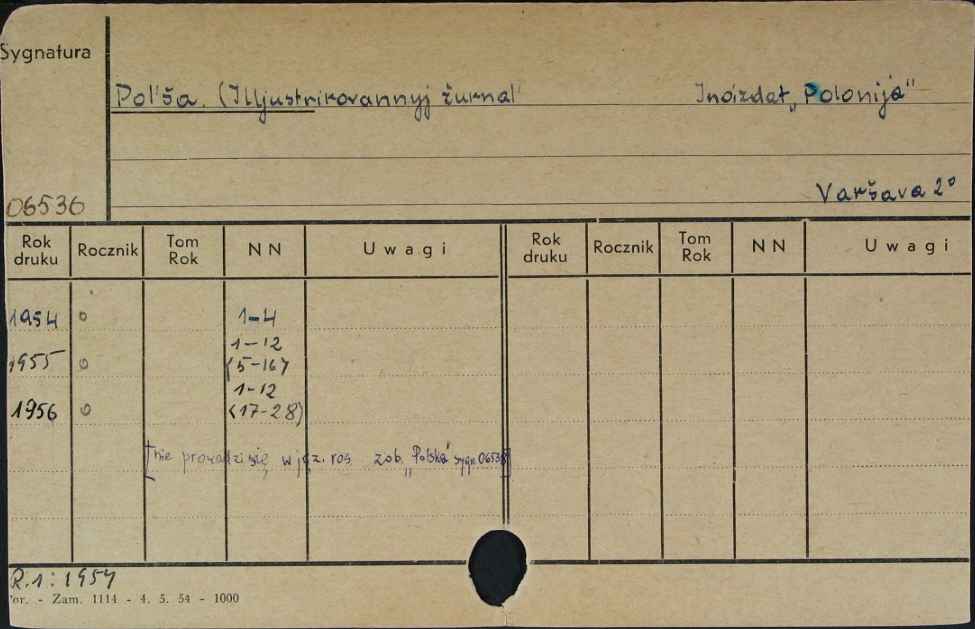 Sygnatura
Pol'ša. (Illjustrirovannyj žurnal Inoizdat „Polonija"
06536 Varšava 2°
Rok druku Rocznik Tom Rok NN Uwagi Rok druku Rocznik Tom Rok NN Uwagi
1954 0 1-4
1-12
1955 0 (5-16)
1-12
1956 0 (17-28)
[nie prowadzi się w jęz. ros zob. „Polska" sygn.
R.1: 1954
or. - Zam. 1114 - 4. 5. 54 - 1000